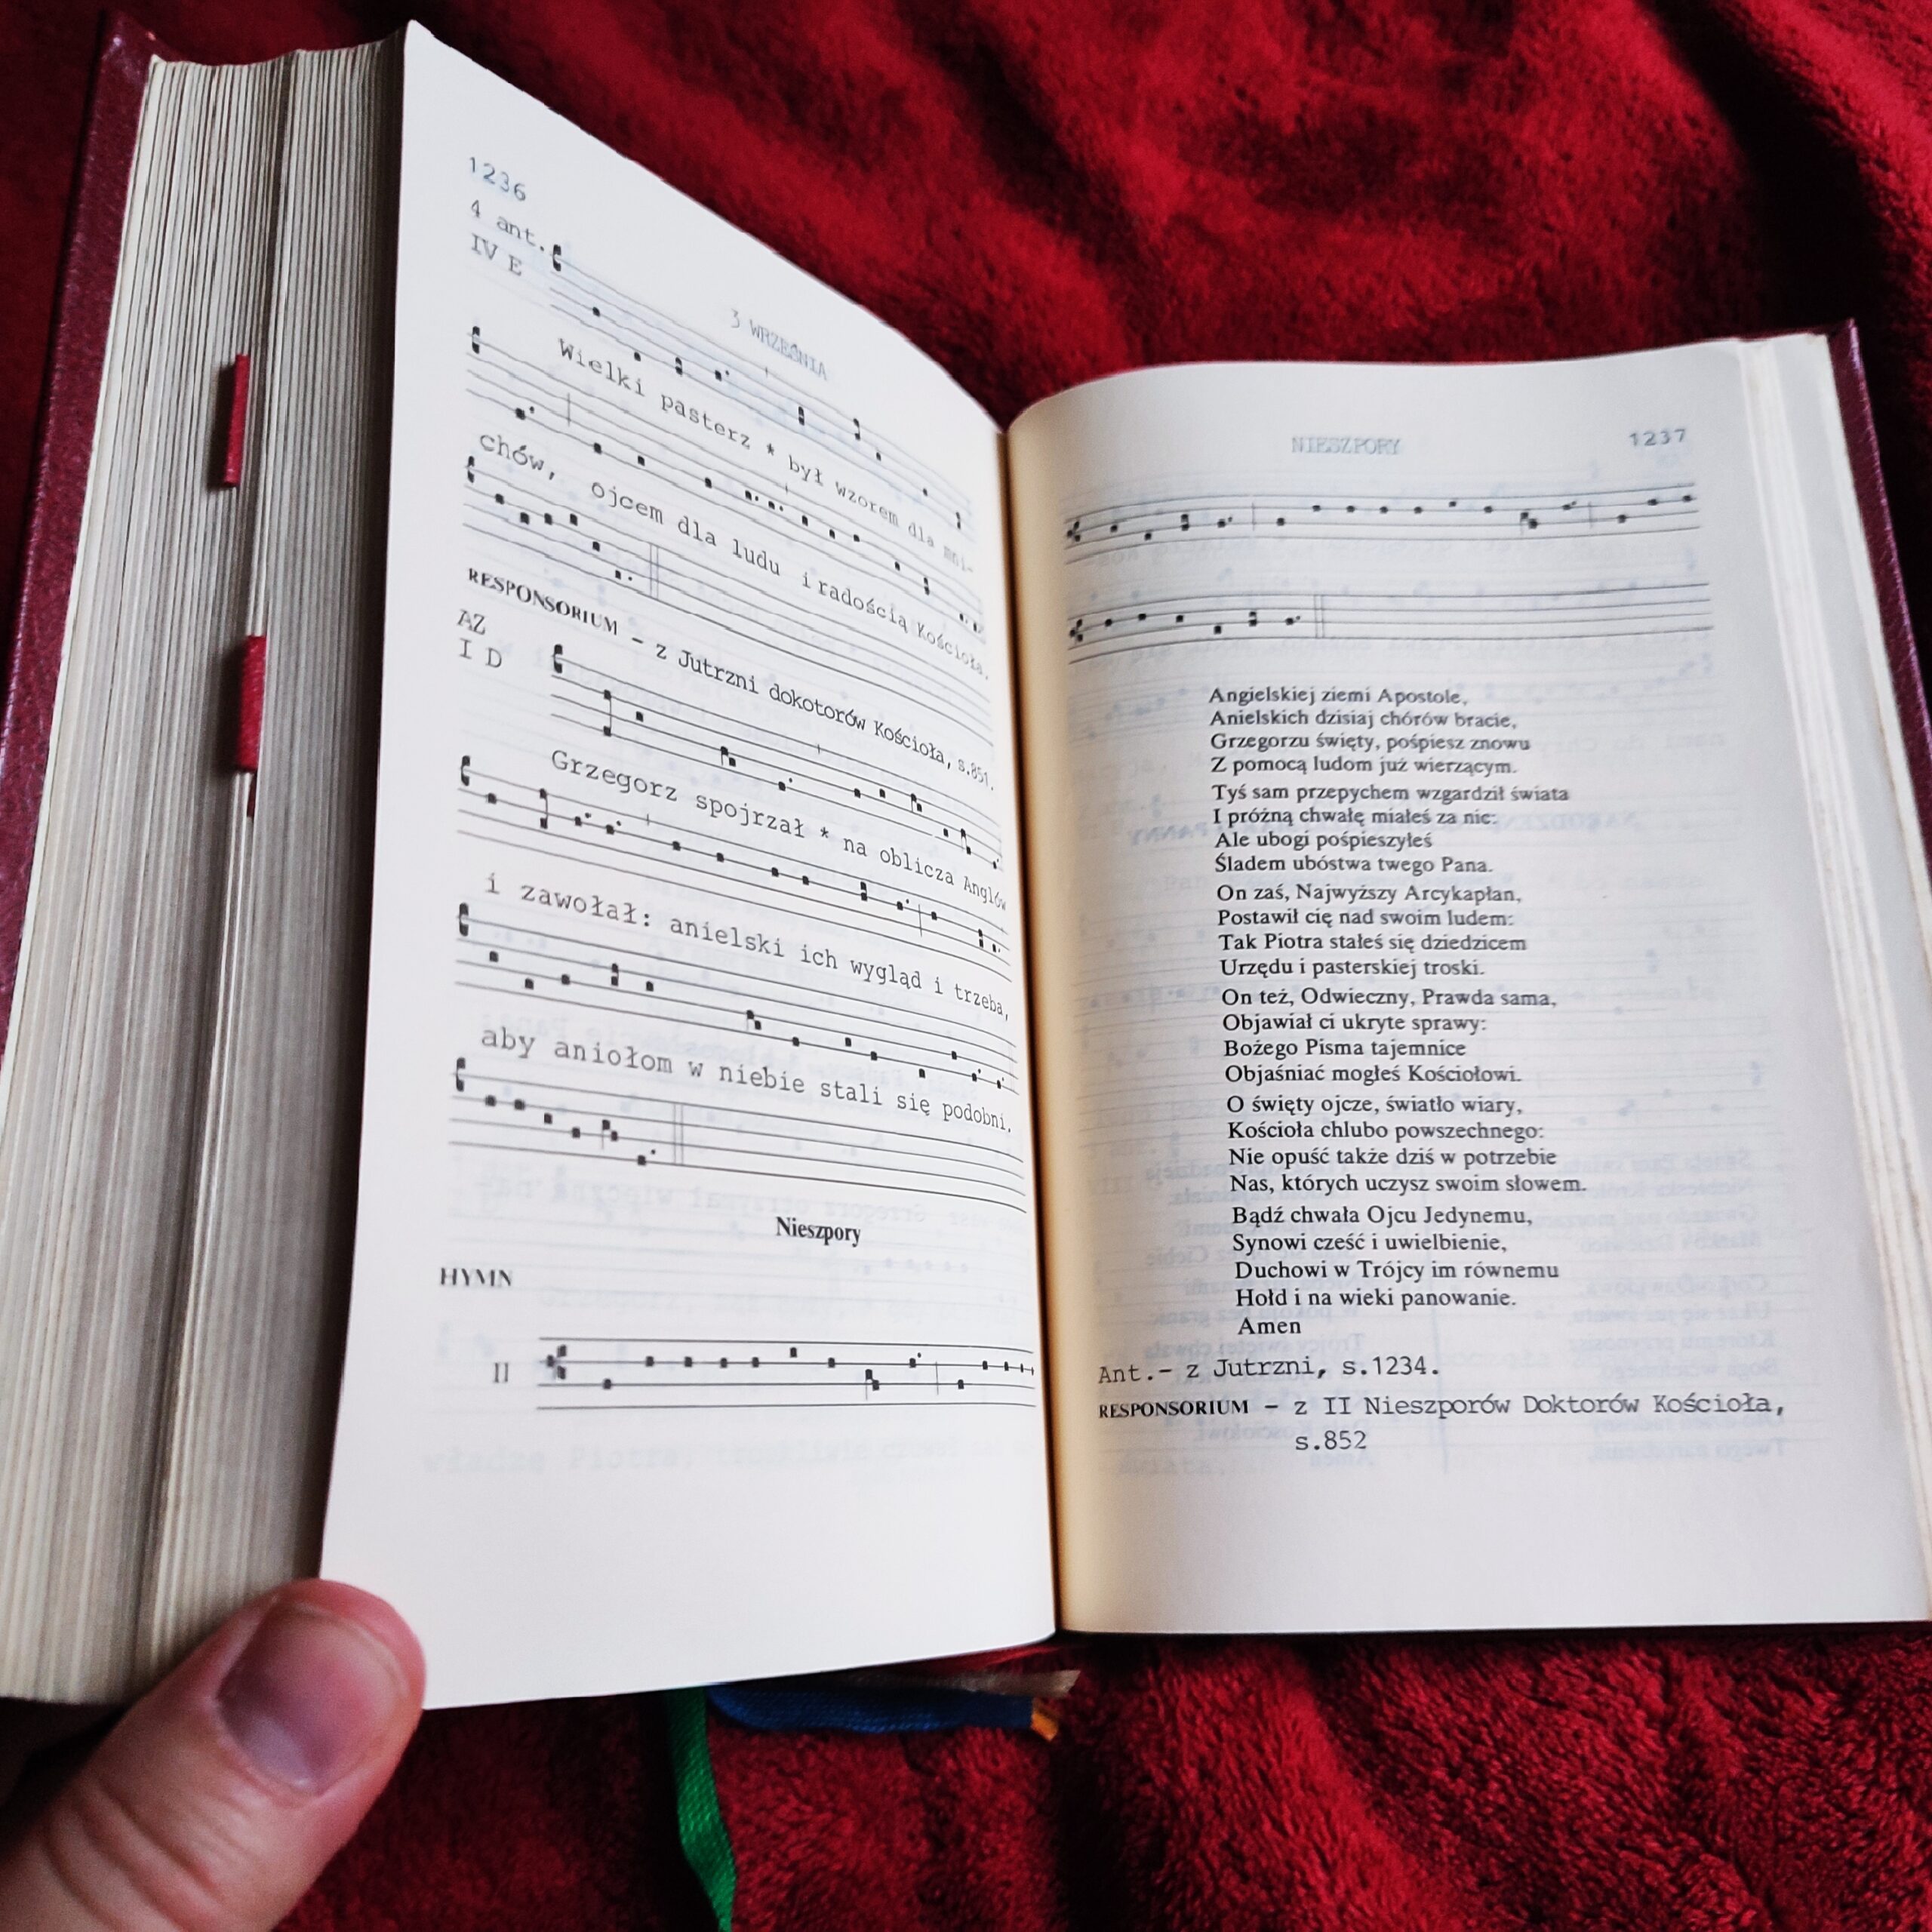 1236
3 WRZEŚNIA
4 ant.
IV E
Wielki pasterz * był wzorem dla mni-
chów, ojcem dla ludu i radością Kościoła.
RESPONSORIUM - z Jutrzni dokotorów Kościoła, s.851.
AZ
I D
Grzegorz spojrzał * na oblicza Anglów
i zawołał: anielski ich wygląd i trzeba,
aby aniołom w niebie stali się podobni.
Nieszpory
HYMN
II
NIESZPORY
1237
Angielskiej ziemi Apostole,
Anielskich dzisiaj chórów bracie,
Grzegorzu święty, pośpiesz znowu
Z pomocą ludom już wierzącym.
Tyś sam przepychem wzgardził świata
I próżną chwałę miałeś za nic:
Ale ubogi pośpieszyłeś
Śladem ubóstwa twego Pana.
On zaś, Najwyższy Arcykapłan,
Postawił cię nad swoim ludem:
Tak Piotra stałeś się dziedzicem
Urzędu i pasterskiej troski.
On też, Odwieczny, Prawda sama,
Objawiał ci ukryte sprawy:
Bożego Pisma tajemnice
Objaśniać mogłeś Kościołowi.
O święty ojcze, światło wiary,
Kościoła chlubo powszechnego:
Nie opuść także dziś w potrzebie
Nas, których uczysz swoim słowem.
Bądź chwała Ojcu Jedynemu,
Synowi cześć i uwielbienie,
Duchowi w Trójcy im równemu
Hołd i na wieki panowanie.
Amen
Ant.- z Jutrzni, s.1234.
RESPONSORIUM - z II Nieszporów Doktorów Kościoła,
s.852